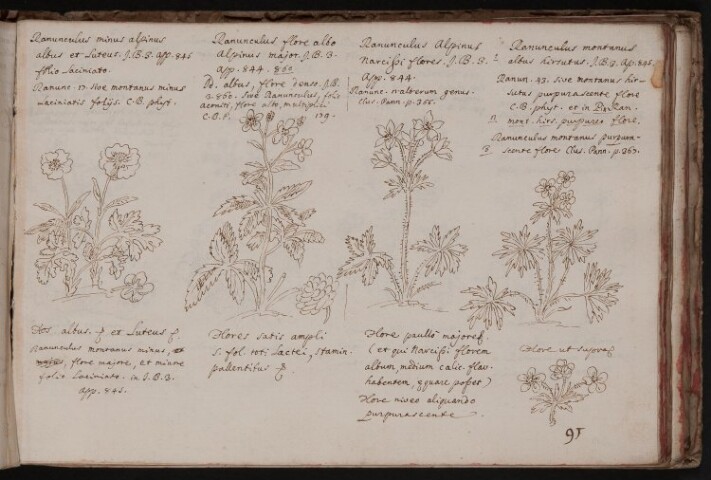 Ranunculus minus alpinus
albus et Luteus. J.B.3. app. 845
folio Laciniato.
Ranunc. 17. sive montanus minus
Laciniatis folijs. C.B. phyt.
Ranunculus flore albo
Alpinus major. J.B. 3.
app. 844. 860
albus, flore denso. J.B.
3. 860. sive Ranunculus, folio
Aconiti, flore albo, multiplici
C.B.P. 179.
Ranunculus Alpinus
Narcissi flores. J.B.3.
App. 844
Ranunc. nostrorum genus.
Clus. Pann. p. 366.
Ranunculus montanus
albus hirsutus. J.B.3. Ap. 845.
Ranun. 43. sive montanus hir-
sutus purpurascente flore
C.B. phyt. et in Pin. Ran.
mont. hirs. purpureo flore.
Ranunculus montanus purpura-
scente flore Clus. Pann. p. 363.
Flos albus et Luteus
Ranunculus montanus minus,
flore majore, et minore
folio Laciniato. in J.B.3.
app. 845.
Flores satis ampli
5. fol. toti Lactei, stamin.
pallentibus
Flore paullo majore
(et qui Narcissi florem
album, medium calic. flav.
habentem, equare posset)
Flore niveo aliquando
purpurascente.
Flore ut supra
91